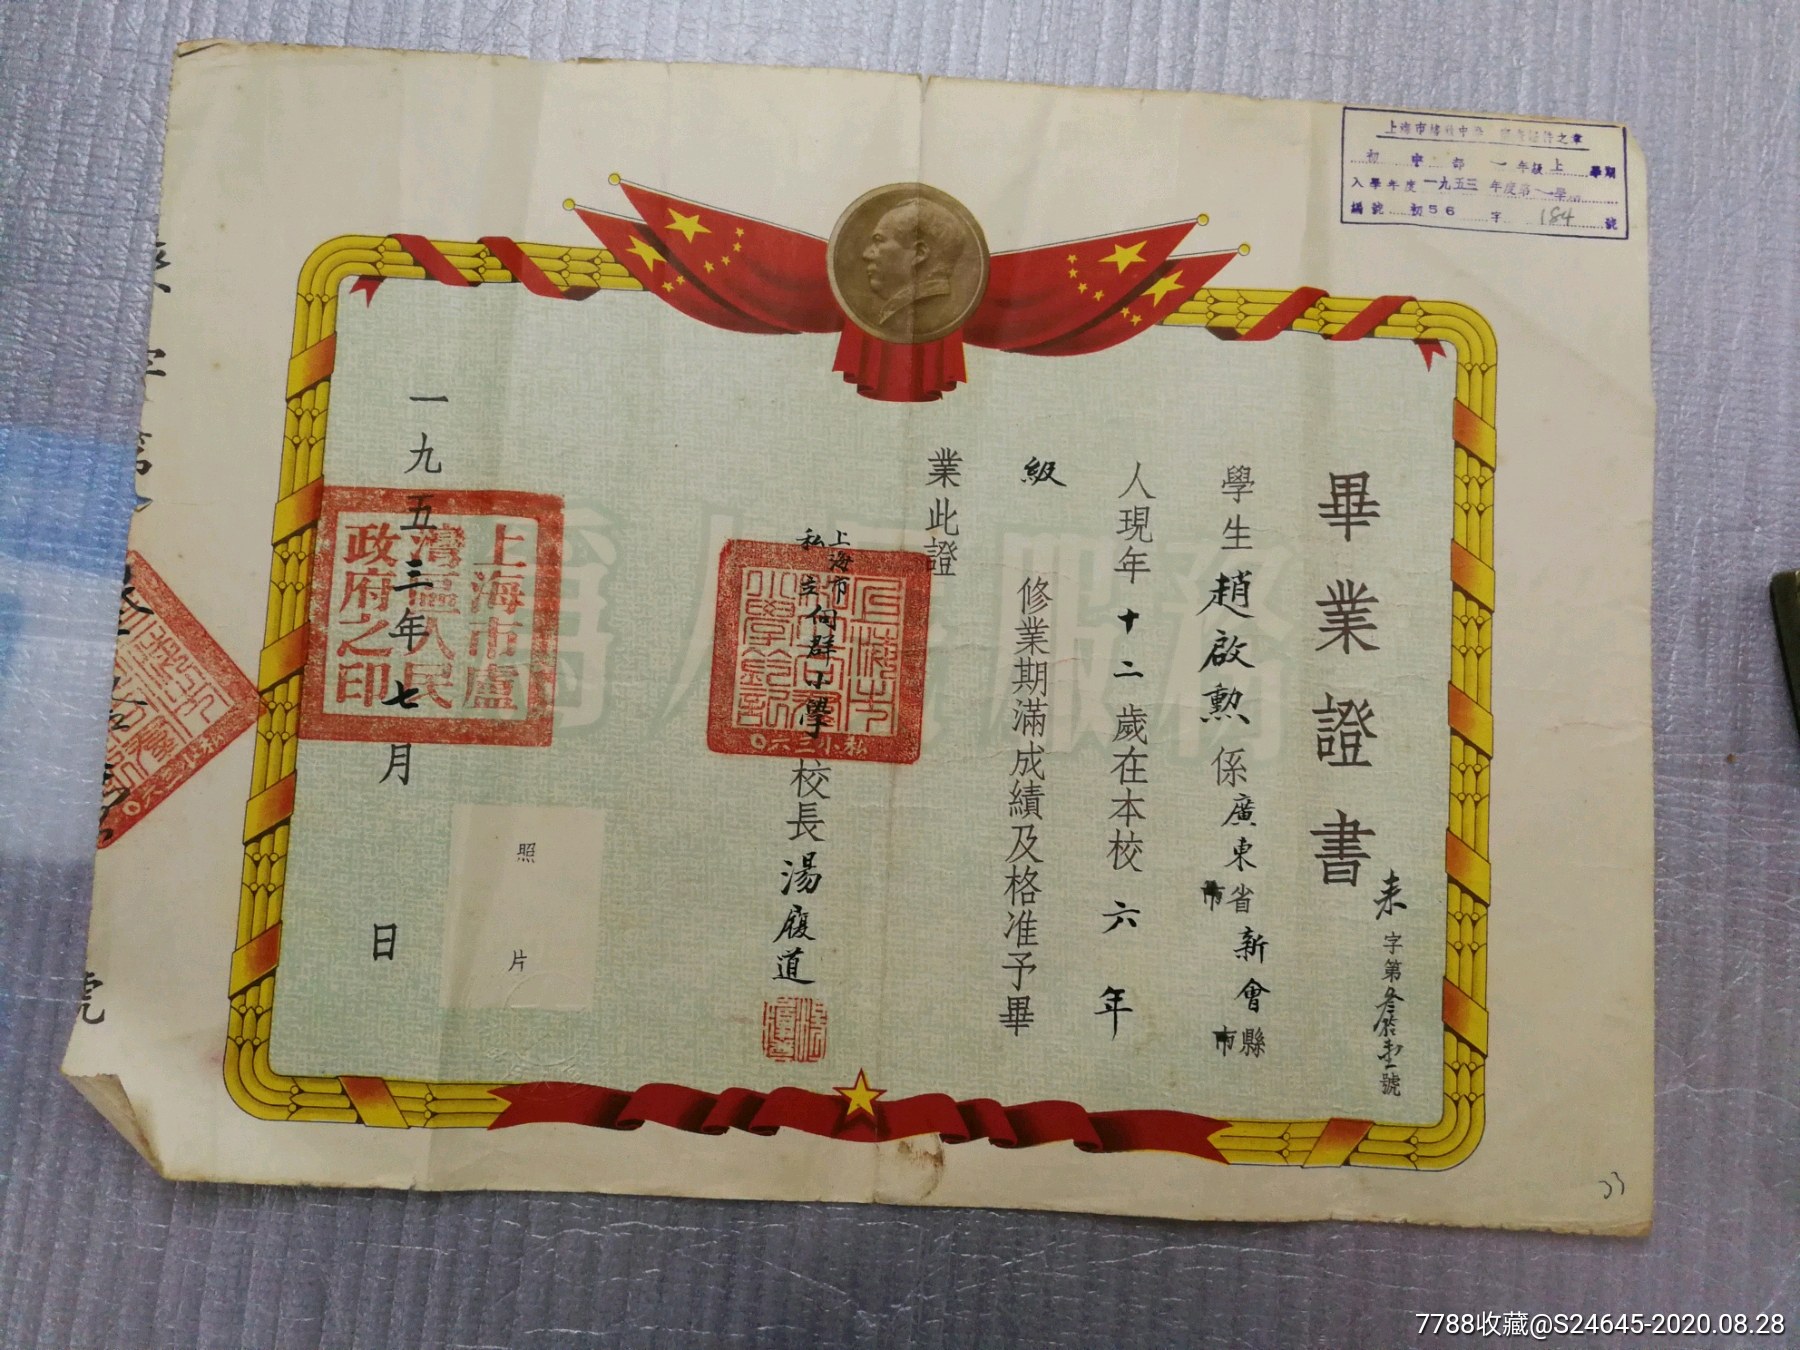 畢業證書
字第
號
學生趙啟勲係廣東省市新會縣市
人現年十二歲在本校六年
級
修業期滿成績及格准予畢
業此證
上海市
私立向群小學校長湯履道
私小三六〇
一九五三年七月 日
上海市盧灣區人民政府之印
照片
為人民服務
初中部一年級上學期
入學年度一九五三年度第一學期
編號初56字184號
號
33
7788收藏@S24645-2020.08.28